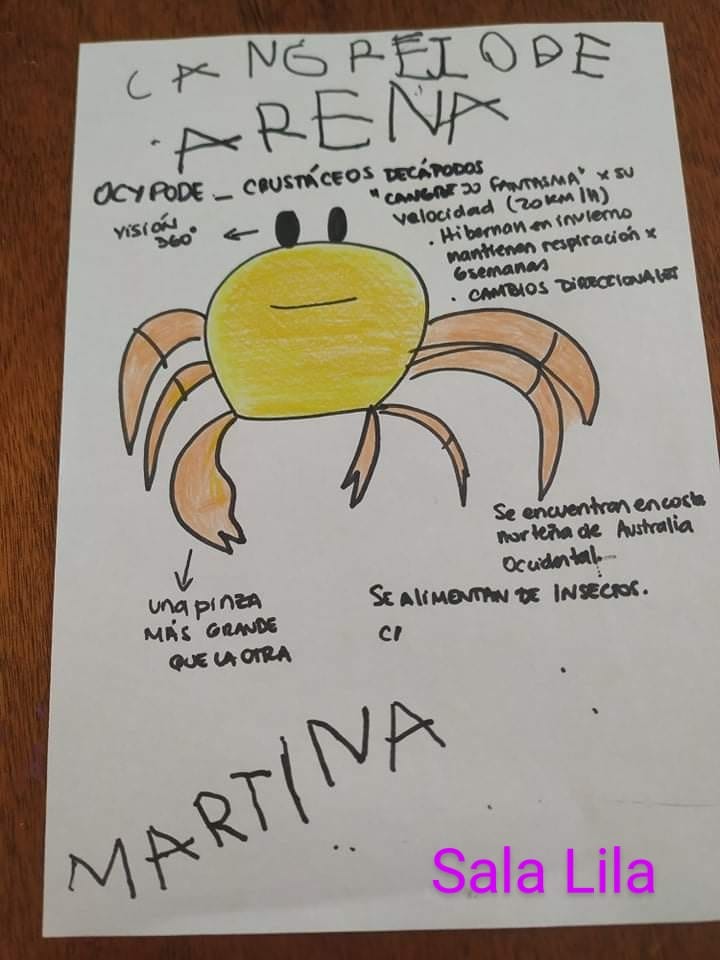 CANGREJO DE
ARENA
OCYPODE _ CRUSTÁCEOS DECÁPODOS
"CANGREJO FANTASMA" x su
velocidad (20 KM/h)
visión
360°
. Hibernan en invierno
mantienen respiración x
6 semanas
. CAMBIOS DIRECCIONALES
Se encuentran en costa
norteña de Australia
Occidental.
una pinza
MÁS GRANDE
QUE LA OTRA
SE ALIMENTAN DE INSECTOS.
CI
MARTINA
Sala Lila